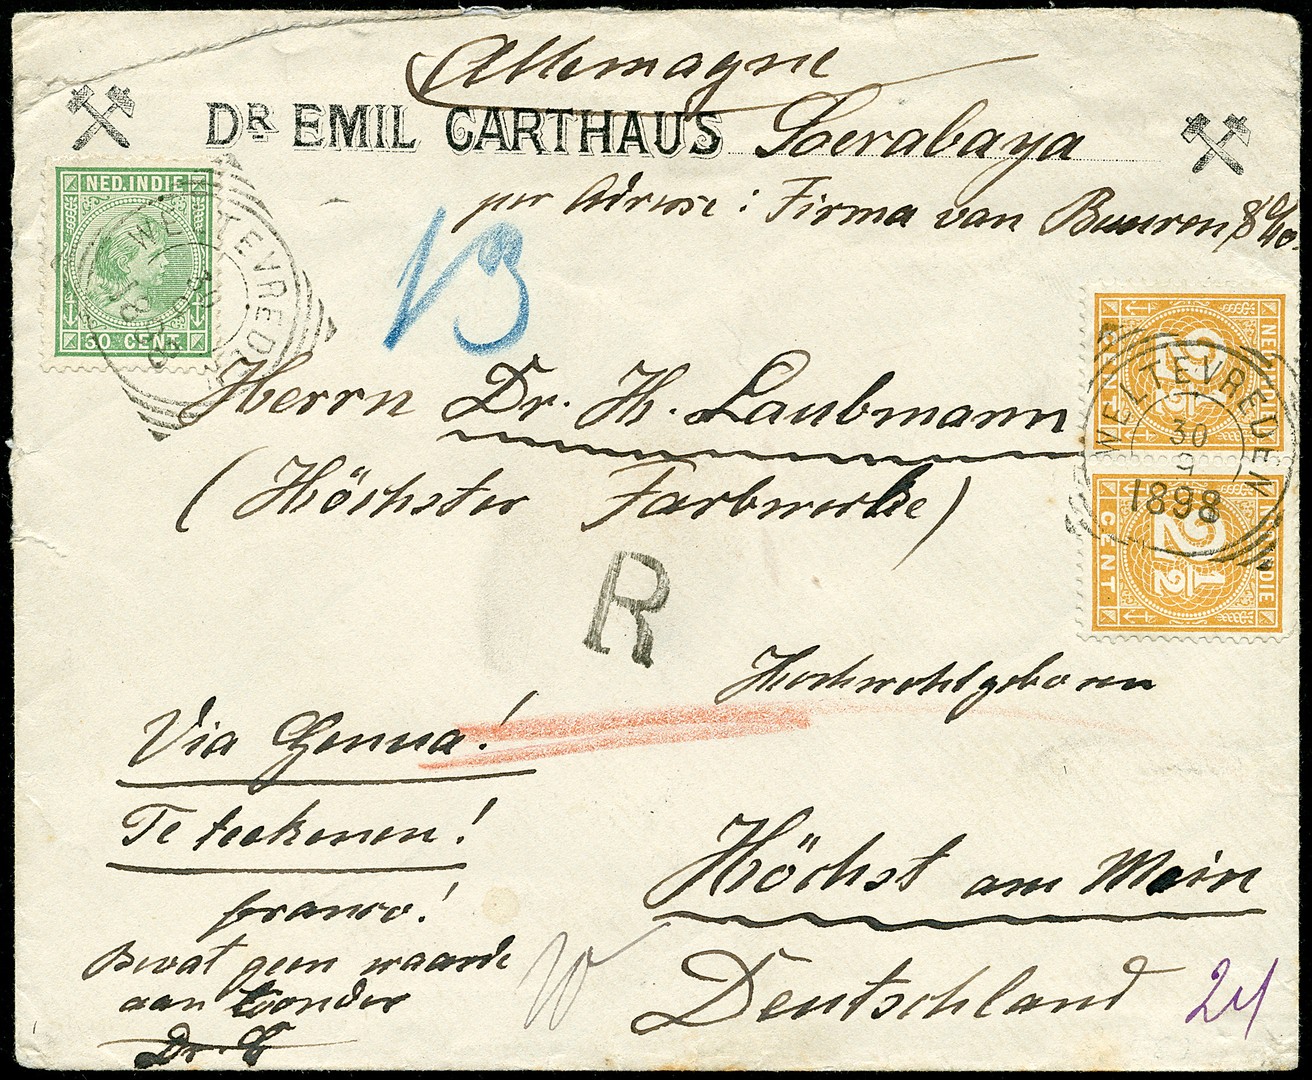 Allemagne
DR EMIL CARTHAUS Soerabaya
per Adresse: Firma van Buuren, & Co.
NED. INDIE
WELTEVREDEN
CENT
13
NED. INDIE
2½
CENT
WELTEVREDEN
30
9
1898
NED. INDIE
2½
CENT
Herrn Dr. H. Laubmann
(Höchster Farbwerke)
R
Hochwohlgeboren
Via Genua!
Te teekenen!
franco!
Höchst am Main
Bevat geen waarde
aan toonder
Dr. C
Deutschland
24